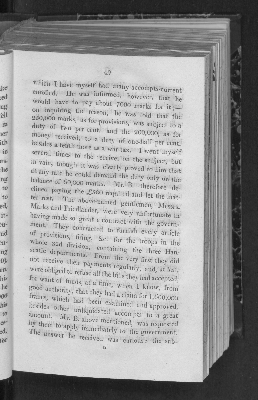 49
which I have myself had many accompts-current
entailed. He was informed, however, that he
would have to pay about 7000 marks for it;—
on inquiring the reason, he was told that the
250,000 marks, as for provisions, was subject to a
duty of two per cent. and the 200,000, as for
money received, to a duty of one-half per cent.
besides a tenth more as a war tax. I went myself
several times to the receiver on the subject, but
in vain, though it was clearly proved to him that
at any rate he could demand the duty only on the
balance of 50,000 marks. Mr. B. therefore de-
clined paying the and let the mat-
ter rest. The abovementioned gentlemen, Messrs.
Marks and Friedlander, were very unfortunate in
having made so great a contract with the govern-
ment. They contracted to furnish every article
of provisions, firing, &c. for the troops in the
whole 32d division, containing the three Han-
seatic departments. From the very first they did
not receive their payments regularly, and, at last,
were obliged to refuse all the bills they had accepted,
for want of funds, at a time, when I know, from
good authority, that they had a claim for 1,800,000
francs, which had been examined and approved,
besides other unliquidated accompts to a great
amount. Mr. B. above mentioned, was requested
by them to apply immediately to the government.
The answer he received was entirely the sub-